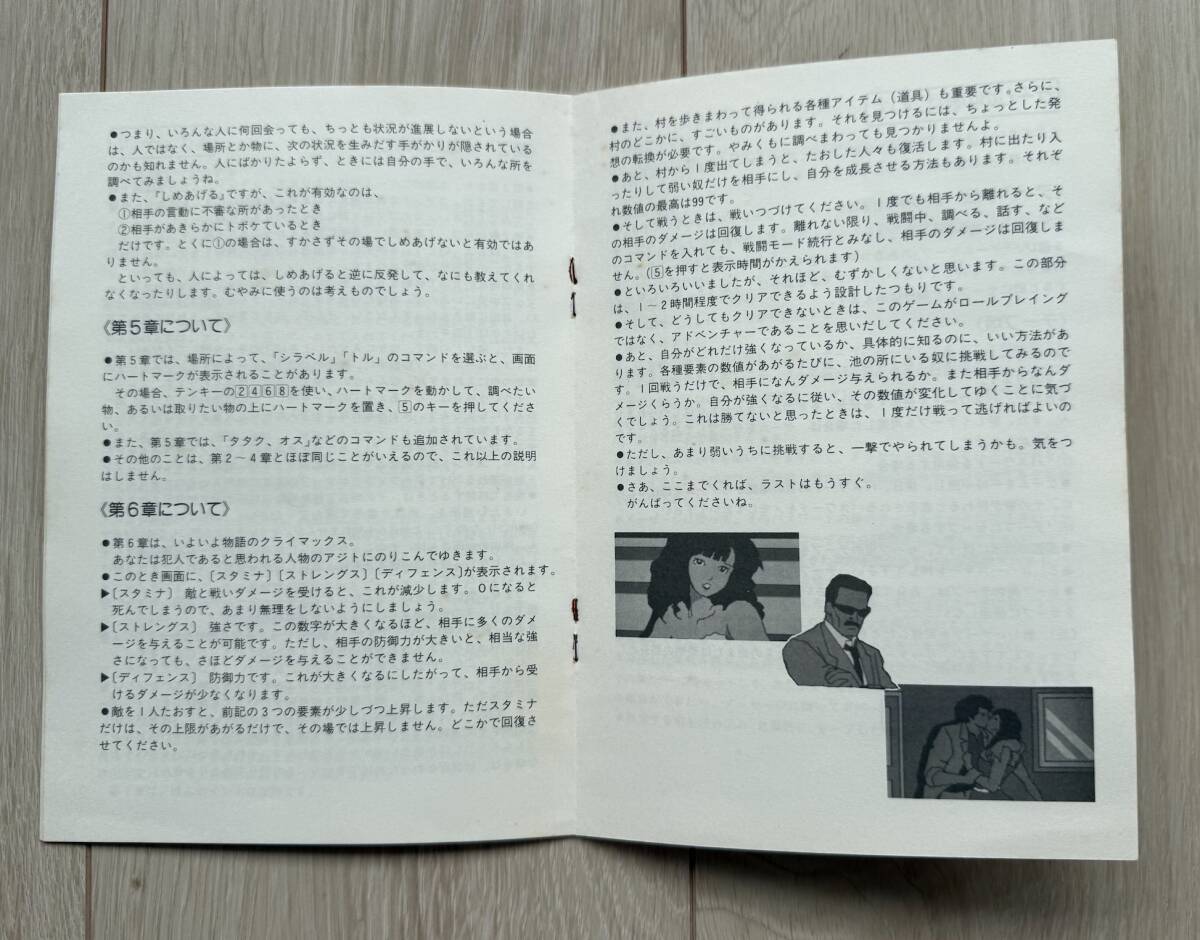 ●つまり、いろんな人に何回会っても、ちっとも状況が進展しないという場合
は、人ではなく、場所とか物に、次の状況を生みだす手がかりが隠されている
のかも知れません。人にばかりたよらず、ときには自分の手で、いろんな所を
調べてみましょうね。
●また、「しめあげる」ですが、これが有効なのは、
①相手の言動に不審な所があったとき
②相手があきらかにトボケているとき
だけです。とくに①の場合は、すかさずその場でしめあげないと有効ではあ
りません。
といっても、人によっては、しめあげると逆に反発して、なにも教えてくれ
なくなったりします。むやみに使うのは考えものでしょう。
《第5章について》
●第5章では、場所によって、「シラベル」「トル」のコマンドを選ぶと、画面
にハートマークが表示されることがあります。
その場合、テンキーの2468を使い、ハートマークを動かして、調べたい
物、あるいは取りたい物の上にハートマークを置き、5のキーを押してくださ
い。
●また、第5章では、「タタク、オス」などのコマンドも追加されています。
●その他のことは、第2〜4章とほぼ同じことがいえるので、これ以上の説明
はしません。
《第6章について》
●第6章は、いよいよ物語のクライマックス。
あなたは犯人であると思われる人物のアジトにのりこんでゆきます。
●このとき画面に、〔スタミナ〕〔ストレングス〕〔ディフェンス〕が表示されます。
▶〔スタミナ〕 敵と戦いダメージを受けると、これが減少します。0になると
死んでしまうので、あまり無理をしないようにしましょう。
▶〔ストレングス〕 強さです。この数字が大きくなるほど、相手に多くのダメ
ージを与えることが可能です。ただし、相手の防御力が大きいと、相当な強
さになっても、さほどダメージを与えることができません。
▶〔ディフェンス〕 防御力です。これが大きくなるにしたがって、相手から受
けるダメージが少なくなります。
●敵を1人たおすと、前記の3つの要素が少しづつ上昇します。ただスタミナ
だけは、その上限があがるだけで、その場では上昇しません。どこかで回復さ
せてください。
●また、村を歩きまわって得られる各種アイテム（道具）も重要です。さらに、
村のどこかに、すごいものがあります。それを見つけるには、ちょっとした発
想の転換が必要です。やみくもに調べまわっても見つかりませんよ。
●あと、村から1度出てしまうと、たおした人々も復活します。村に出たり入
ったりして弱い奴だけを相手にし、自分を成長させる方法もあります。それぞ
れ数値の最高は99です。
●そして戦うときは、戦いつづけてください。1度でも相手から離れると、そ
の相手のダメージは回復します。離れない限り、戦闘中、調べる、話す、など
のコマンドを入れても、戦闘モード続行とみなし、相手のダメージは回復しま
せん。(5を押すと表示時間がかえられます)
●といろいろいいましたが、それほど、むずかしくないと思います。この部分
は、1〜2時間程度でクリアできるよう設計したつもりです。
●そして、どうしてもクリアできないときは、このゲームがロールプレイング
ではなく、アドベンチャーであることを思いだしてください。
●あと、自分がどれだけ強くなっているか、具体的に知るのに、いい方法があ
ります。各種要素の数値があがるたびに、池の所にいる奴に挑戦してみるので
す。1回戦うだけで、相手になんダメージ与えられるか。また相手からなんダ
メージくらうか。自分が強くなるに従い、その数値が変化してゆくことに気づ
くでしょう。これは勝てないと思ったときは、1度だけ戦って逃げればよいの
です。
●ただし、あまり弱いうちに挑戦すると、一撃でやられてしまうかも。気をつ
けましょう。
●さあ、ここまでくれば、ラストはもうすぐ。
がんばってくださいね。